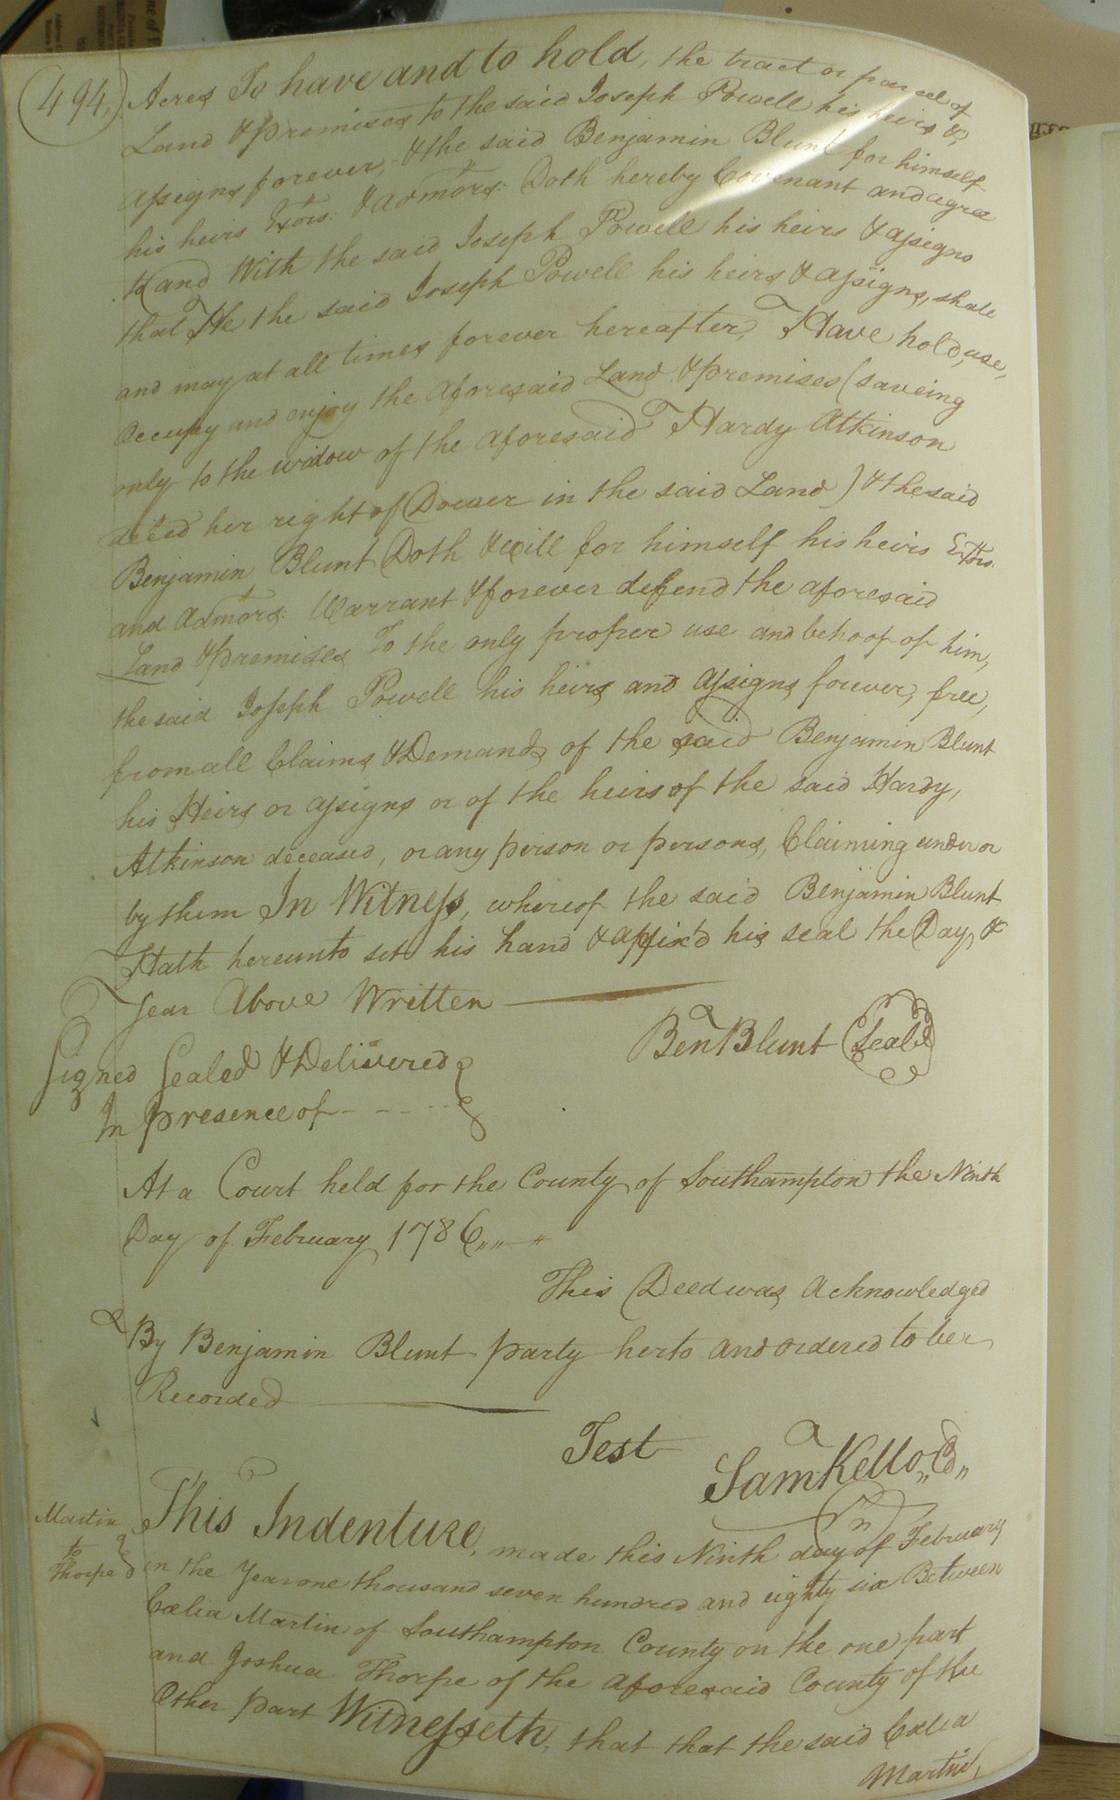 494.) Acres To have and to hold, the tract or parcel of
Land & premises to the said Joseph Powell his heirs &
assigns forever, & the said Benjamin Blunt for himself
his heirs Exors: & admors: Doth hereby Covenant and agree
to and With the said Joseph Powell his heirs & assigns
that He the said Joseph Powell his heirs & assigns, shall
and may at all times forever hereafter, Have hold, use,
occupy and enjoy the aforesaid Land & premises (saveing
only to the widow of the aforesaid Hardy Atkinson
deced her right of Dower in the said Land) & the said
Benjamin Blunt Doth & will for himself his heirs Exors.
and Admors: Warrant & forever defend the aforesaid
Land & premises To the only proper use and behoof of him,
the said Joseph Powell his heirs and assigns forever, free,
from all Claims & Demands of the said Benjamin Blunt
his Heirs or assigns or of the heirs of the said Hardy,
Atkinson deceased, or any person or persons, Claiming under or
by them In Witness, whereof the said Benjamin Blunt
Hath hereunto set his hand & affix'd his seal the Day &
Year Above Written
Ben Blunt (Seal)
Signed Sealed & Delivered
In presence of - - - -
At a Court held for the County of Southampton the Ninth
Day of February 1786,,
This Deed was Acknowledged
By Benjamin Blunt party herto and ordered to be
Recorded
Test Sam Kello,, C,,
Martin
to
Thorpe
This Indenture, made this Ninth day of February
in the Year one thousand seven hundred and eighty six Between
Cælia Martin of Southampton County on the one part
and Joshua Thorpe of the aforesaid County of the
Other part Witnesseth, that that the said Cælia
Martin,